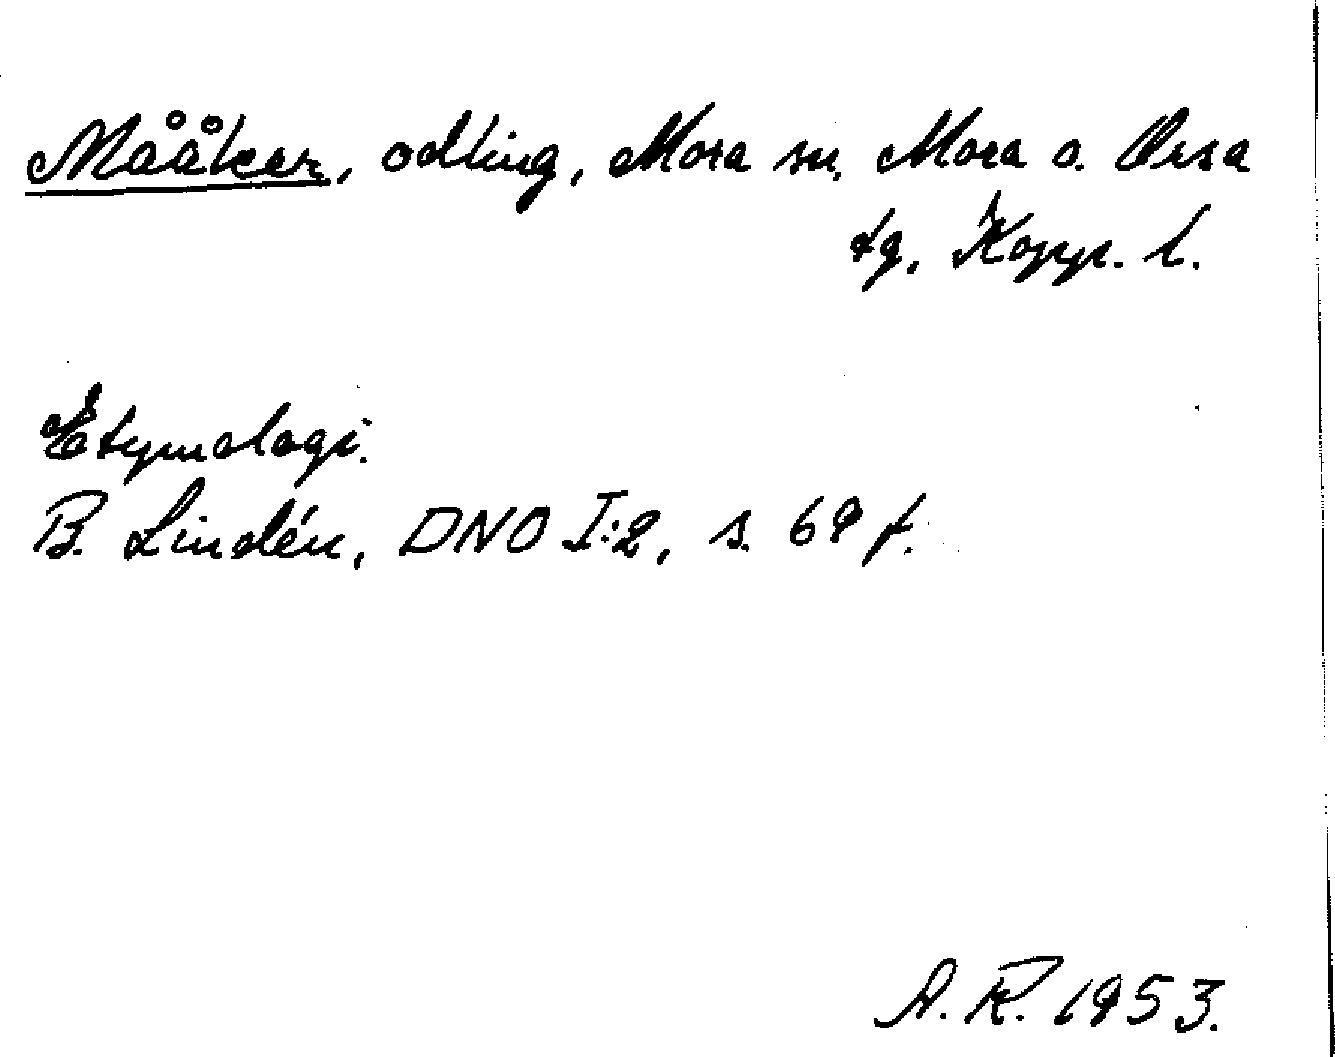 Mååker, odling, Mora sn, Mora o. Orsa
tg, Kopp. l.
Etymologi.
B. Lindén, DNO I:2, s. 69 f.
A. R. 1953.